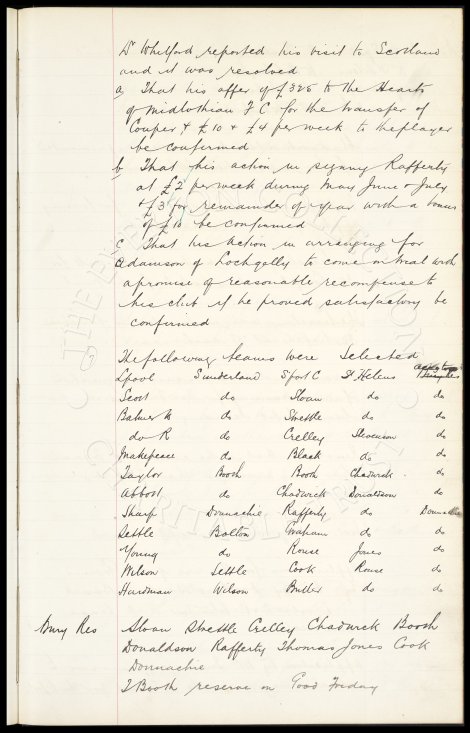 Dr Whitford reported his visit to Scotland
and it was resolved
a That his offer of £325 to the Hearts
of Midlothian F C for the transfer of
Couper & £10 & £4 per week to the player
be confirmed
b That his action in signing Rafferty
at £2 per week during May June & July
& £3 for remainder of year with a bonus
of £10 be confirmed
c That his action in arranging for
Adamson of Lochgelly to come on trial with
a promise of reasonable recompense to
his club if he proved satisfactory be
confirmed
The following teams were selected
Lpool Sunderland S'port C St Helens
Scott do Sloan do do
Balmer W do Strettle do do
do R do Crelley Stevenson do
Makepeace do Black do do
Taylor Booth Booth Chadwick do
Abbott do Chadwick Donaldson do
Sharp Donnachie Rafferty do Donnachie
Settle Bolton Graham do do
Young do Rouse Jones do
Wilson Settle Cook Rouse do
Hardman Wilson Butler do do
Bury Res Sloan Strettle Crelley Chadwick Booth
Donaldson Rafferty Thomas Jones Cook
Donnachie
T Booth reserve on Good Friday